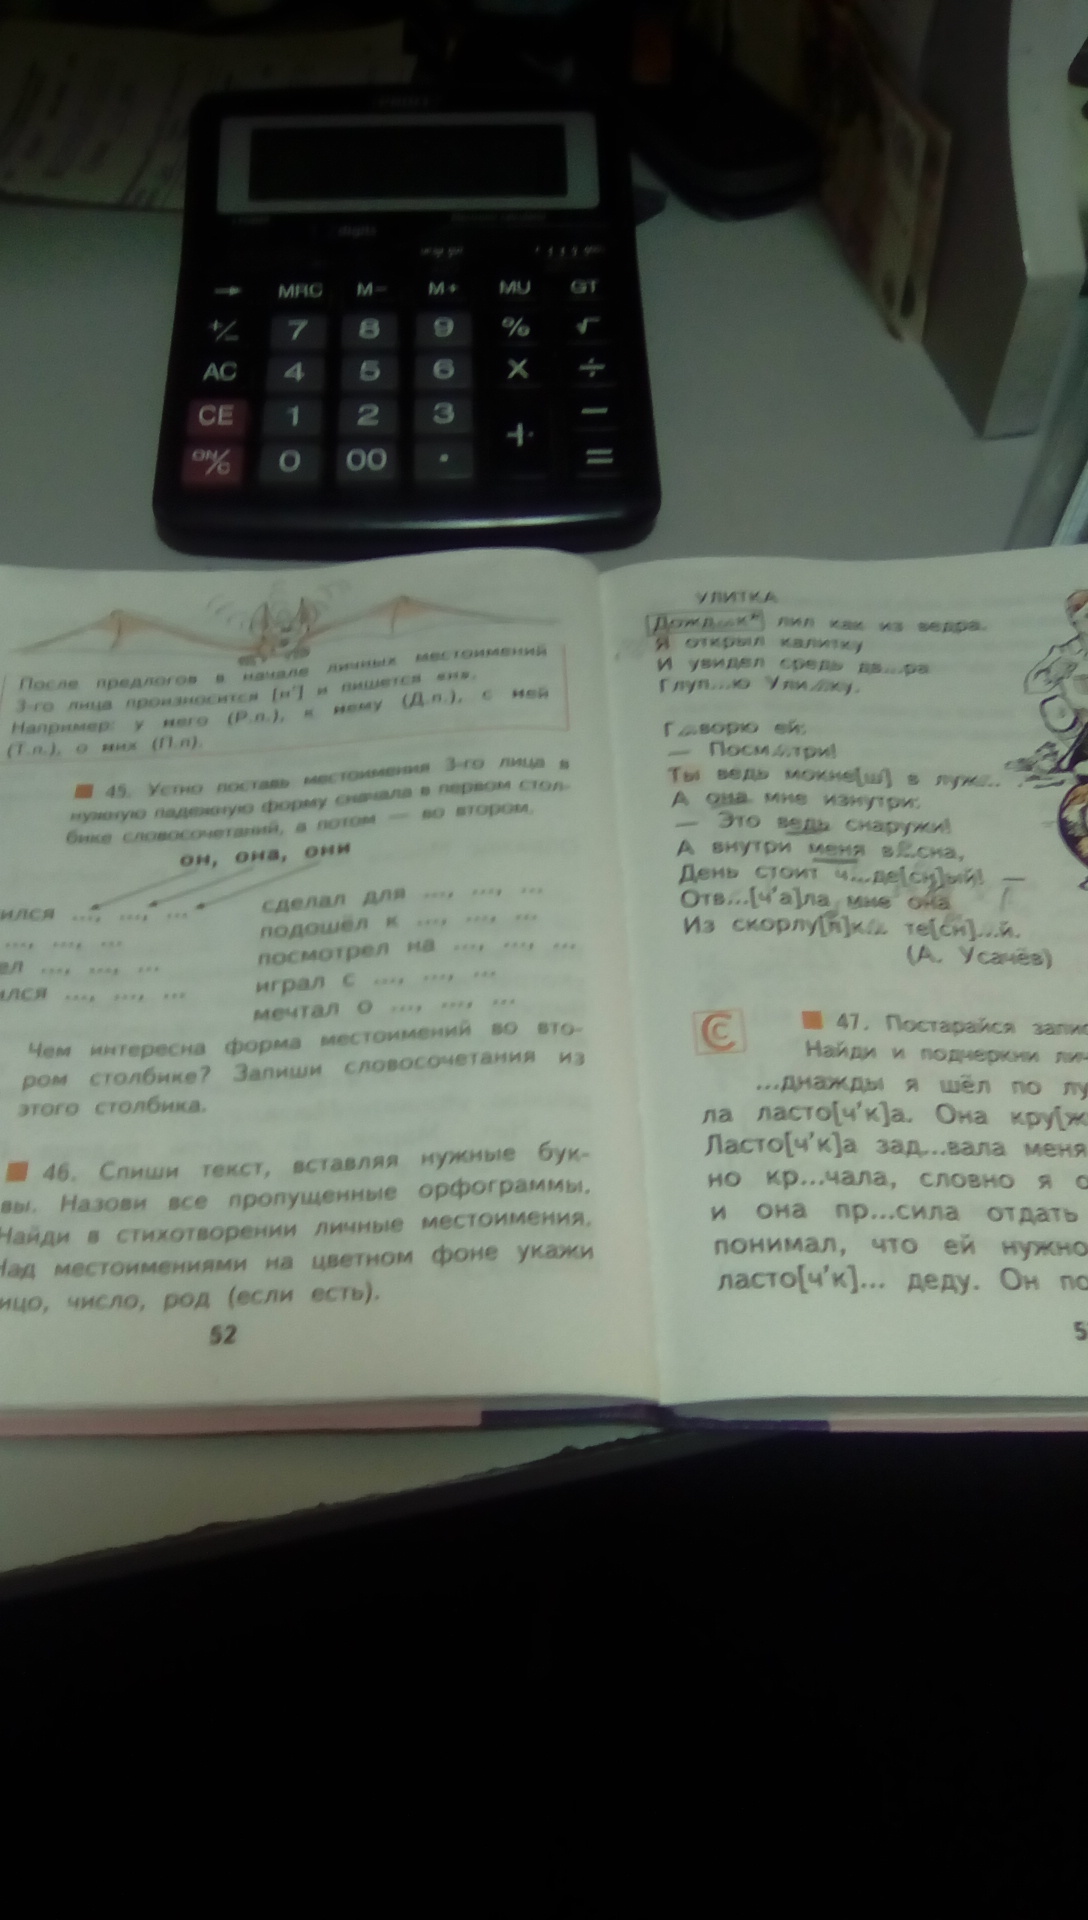 MRC M− M+ MU GT
+/− 7 8 9 % √
AC 4 5 6 × ÷
CE 1 2 3 + −
ON/C 0 00 · =
После предлогов в начале личных местоимений
3-го лица произносится [н'] и пишется «н».
Например: у него (Р.п.), к нему (Д.п.), с ней
(Т.п.), о них (П.п).
45. Устно поставь местоимения 3-го лица в
нужную падежную форму сначала в первом стол-
бике словосочетаний, а потом — во втором.
он, она, они
ился ..., ..., ...
..., ..., ...
ел ..., ..., ...
ился ..., ..., ...
сделал для ..., ..., ...
подошёл к ..., ..., ...
посмотрел на ..., ..., ...
играл с ..., ..., ...
мечтал о ..., ..., ...
Чем интересна форма местоимений во вто-
ром столбике? Запиши словосочетания из
этого столбика.
46. Спиши текст, вставляя нужные бук-
вы. Назови все пропущенные орфограммы.
Найди в стихотворении личные местоимения.
Над местоимениями на цветном фоне укажи
ицо, число, род (если есть).
52
УЛИТКА
Дожд...к* лил как из ведра.
Я открыл калитку
И увидел средь дв...ра
Глуп...ю Ули...ку.
Г...ворю ей:
— Посм...три!
Ты ведь мокне[ш] в луж...
А она мне изнутри:
— Это ведь снаружи!
А внутри меня в...сна,
День стоит ч...де[сн]ый! —
Отв...[ч'а]ла мне она
Из скорлу[п]к... те[сн]...й.
(А. Усачёв)
С
47. Постарайся запис
Найди и подчеркни лич
...днажды я шёл по лу
ла ласто[ч'к]а. Она кру[ж
Ласто[ч'к]а зад...вала меня
но кр...чала, словно я
и она пр...сила отдать
понимал, что ей нужно
ласто[ч'к]... деду. Он по
5